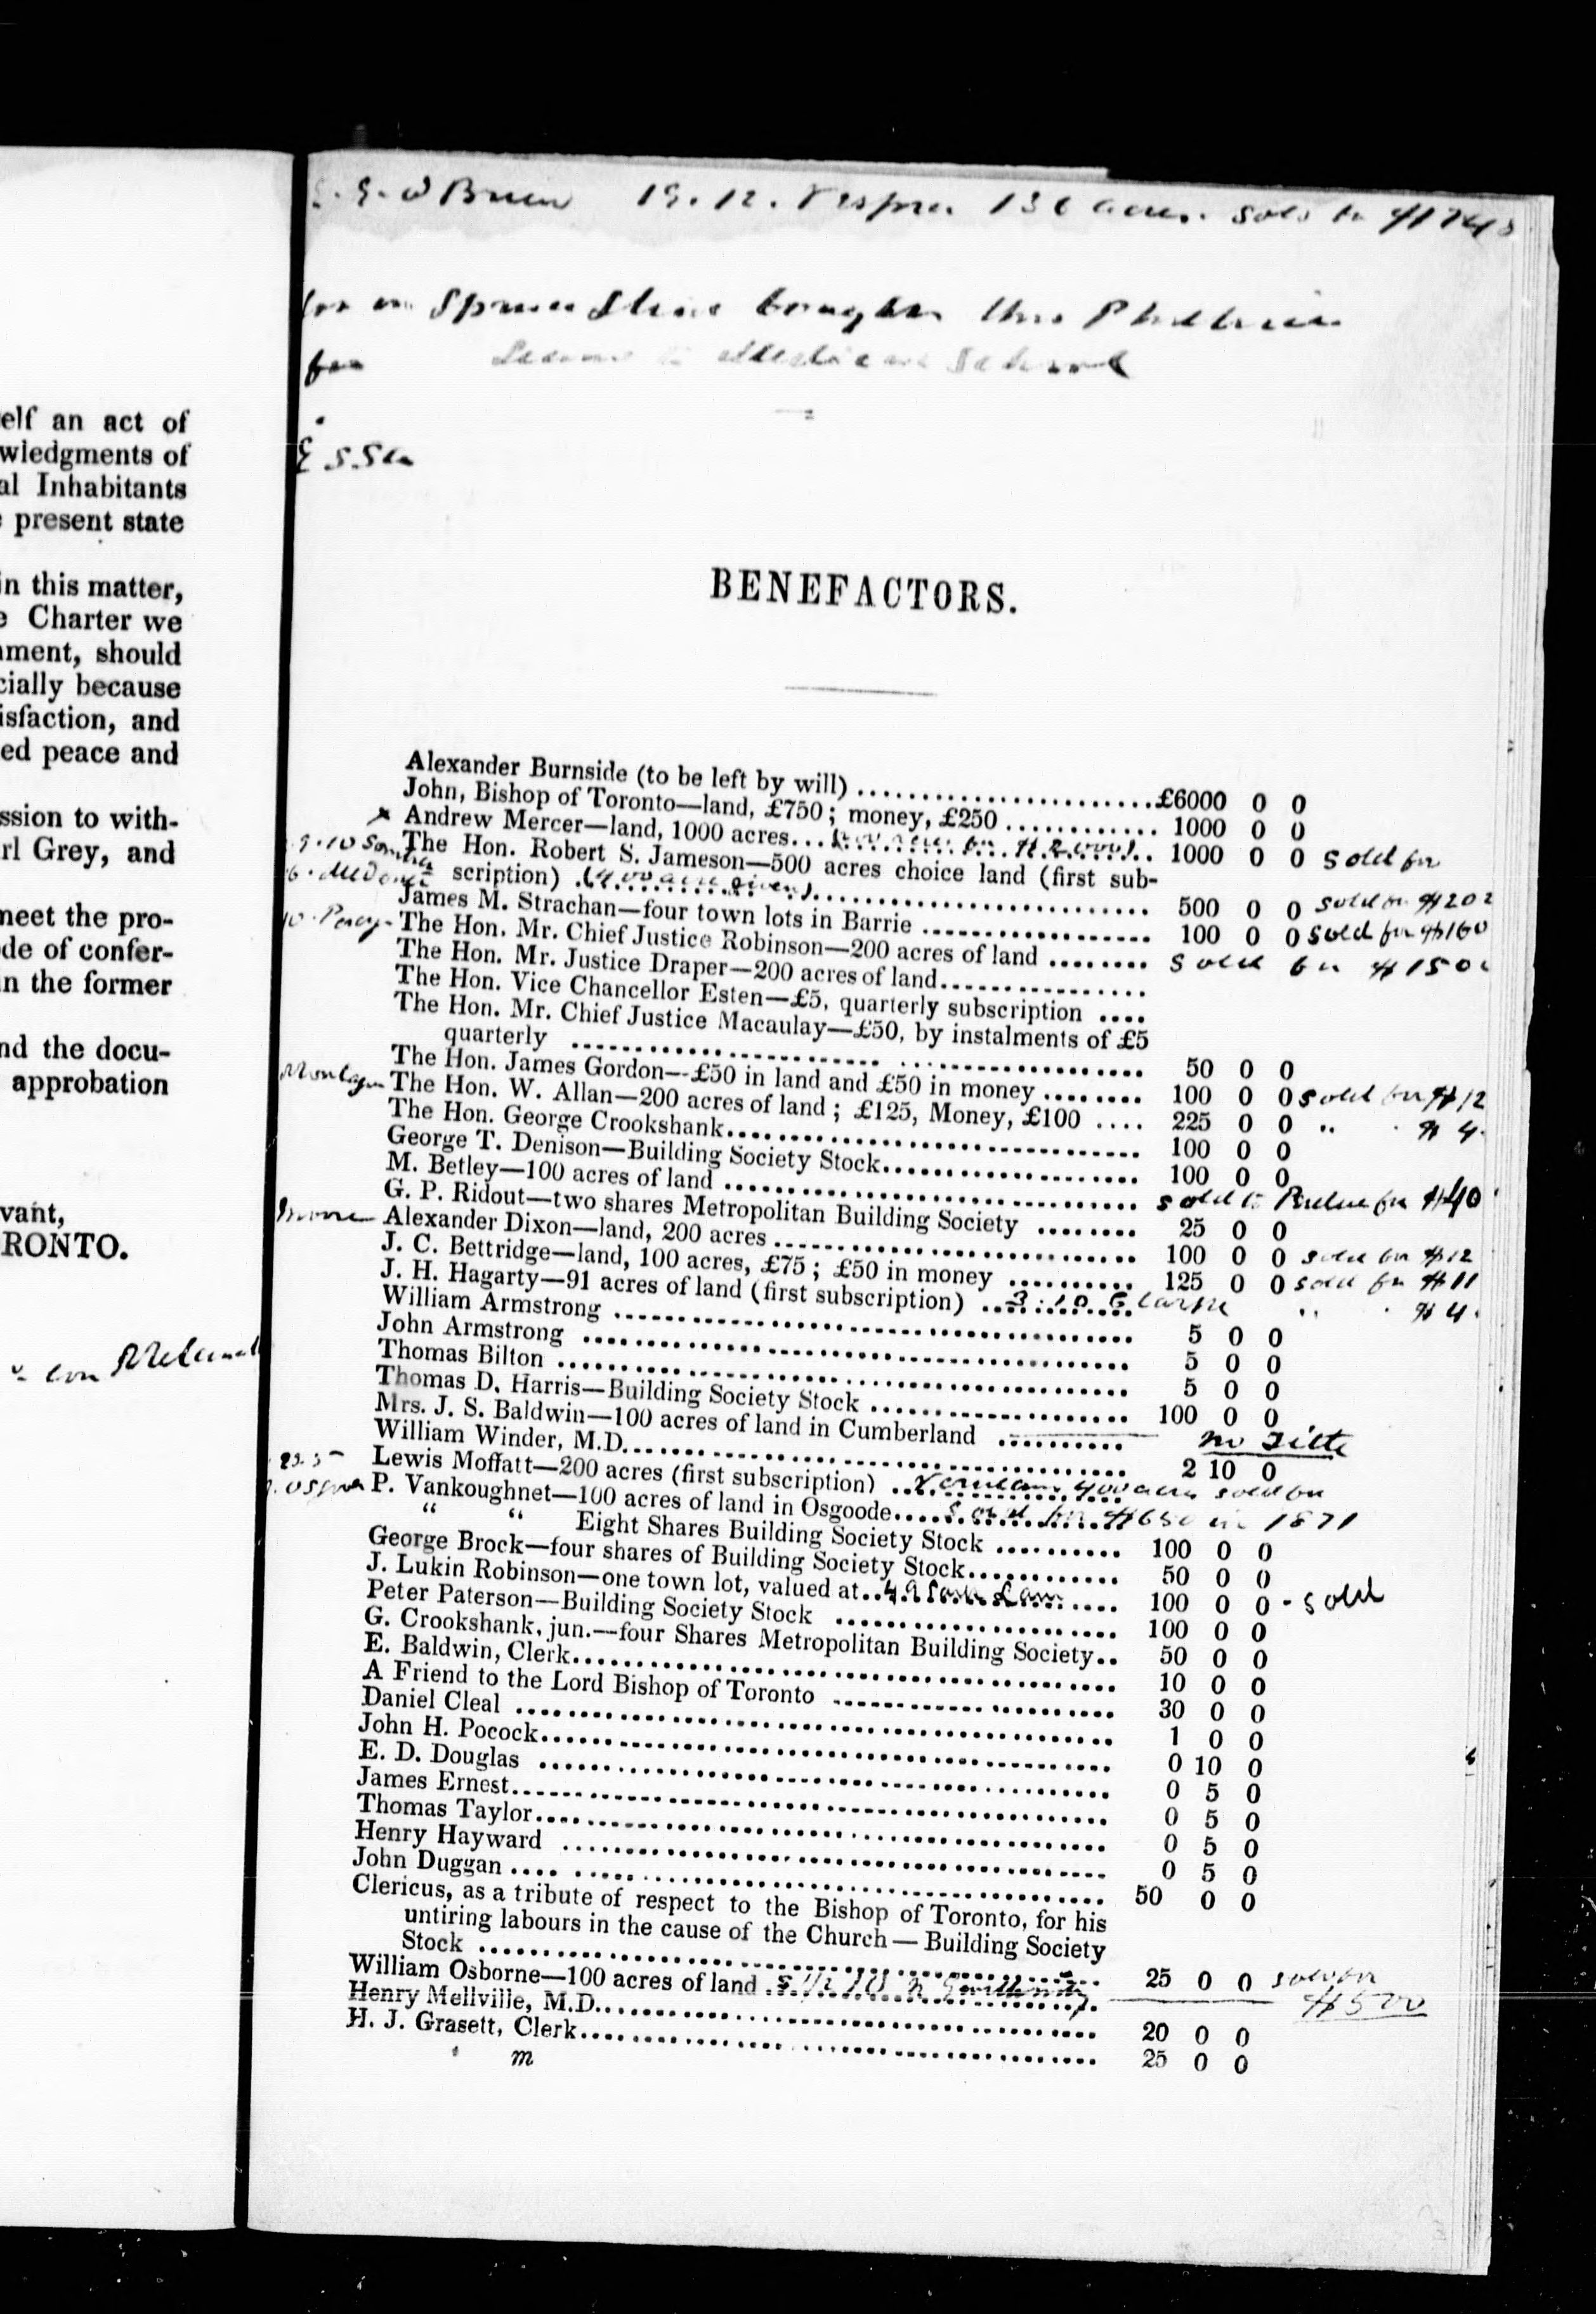 elf an act of
wledgments of
al Inhabitants
present state
in this matter,
Charter we
nment, should
cially because
isfaction, and
ed peace and
ssion to with-
rl Grey, and
meet the pro-
de of confer-
in the former
nd the docu-
approbation
vant,
RONTO.
O'Brien 19.12. Vespra
Essa
BENEFACTORS.
Alexander Burnside (to be left by will) £6000 0 0
John, Bishop of Toronto—land, £750; money, £250 1000 0 0
Andrew Mercer—land, 1000 acres 1000 0 0 sold for
The Hon. Robert S. Jameson—500 acres choice land (first sub-
scription) 500 0 0 sold for $202
James M. Strachan—four town lots in Barrie 100 0 0 sold for $160
The Hon. Mr. Chief Justice Robinson—200 acres of land sold for
The Hon. Mr. Justice Draper—200 acres of land
The Hon. Vice Chancellor Esten—£5, quarterly subscription
The Hon. Mr. Chief Justice Macaulay—£50, by instalments of £5
quarterly 50 0 0
The Hon. James Gordon—£50 in land and £50 in money 100 0 0 sold for $12
The Hon. W. Allan—200 acres of land; £125, Money, £100 225 0 0 " $4
The Hon. George Crookshank 100 0 0
George T. Denison—Building Society Stock 100 0 0
M. Betley—100 acres of land sold to for $40
G. P. Ridout—two shares Metropolitan Building Society 25 0 0
Alexander Dixon—land, 200 acres 100 0 0 sold for $12
J. C. Bettridge—land, 100 acres, £75; £50 in money 125 0 0 sold for $11
J. H. Hagarty—91 acres of land (first subscription) 3.10 " $4
William Armstrong 5 0 0
John Armstrong 5 0 0
Thomas Bilton 5 0 0
Thomas D. Harris—Building Society Stock 100 0 0
Mrs. J. S. Baldwin—100 acres of land in Cumberland no Title
William Winder, M.D. 2 10 0
Lewis Moffatt—200 acres (first subscription) Verulam 400 acres sold for
P. Vankoughnet—100 acres of land in Osgoode sold for $650 in 1871
" " Eight Shares Building Society Stock 100 0 0
George Brock—four shares of Building Society Stock 50 0 0
J. Lukin Robinson—one town lot, valued at 100 0 0 - sold
Peter Paterson—Building Society Stock 100 0 0
G. Crookshank, jun.—four Shares Metropolitan Building Society 50 0 0
E. Baldwin, Clerk 10 0 0
A Friend to the Lord Bishop of Toronto 30 0 0
Daniel Cleal 1 0 0
John H. Pocock 0 10 0
E. D. Douglas 0 5 0
James Ernest 0 5 0
Thomas Taylor 0 5 0
Henry Hayward 0 5 0
John Duggan 50 0 0
Clericus, as a tribute of respect to the Bishop of Toronto, for his
untiring labours in the cause of the Church — Building Society
Stock 25 0 0
William Osborne—100 acres of land sold for $500
Henry Mellville, M.D. 20 0 0
H. J. Grasett, Clerk 25 0 0
m